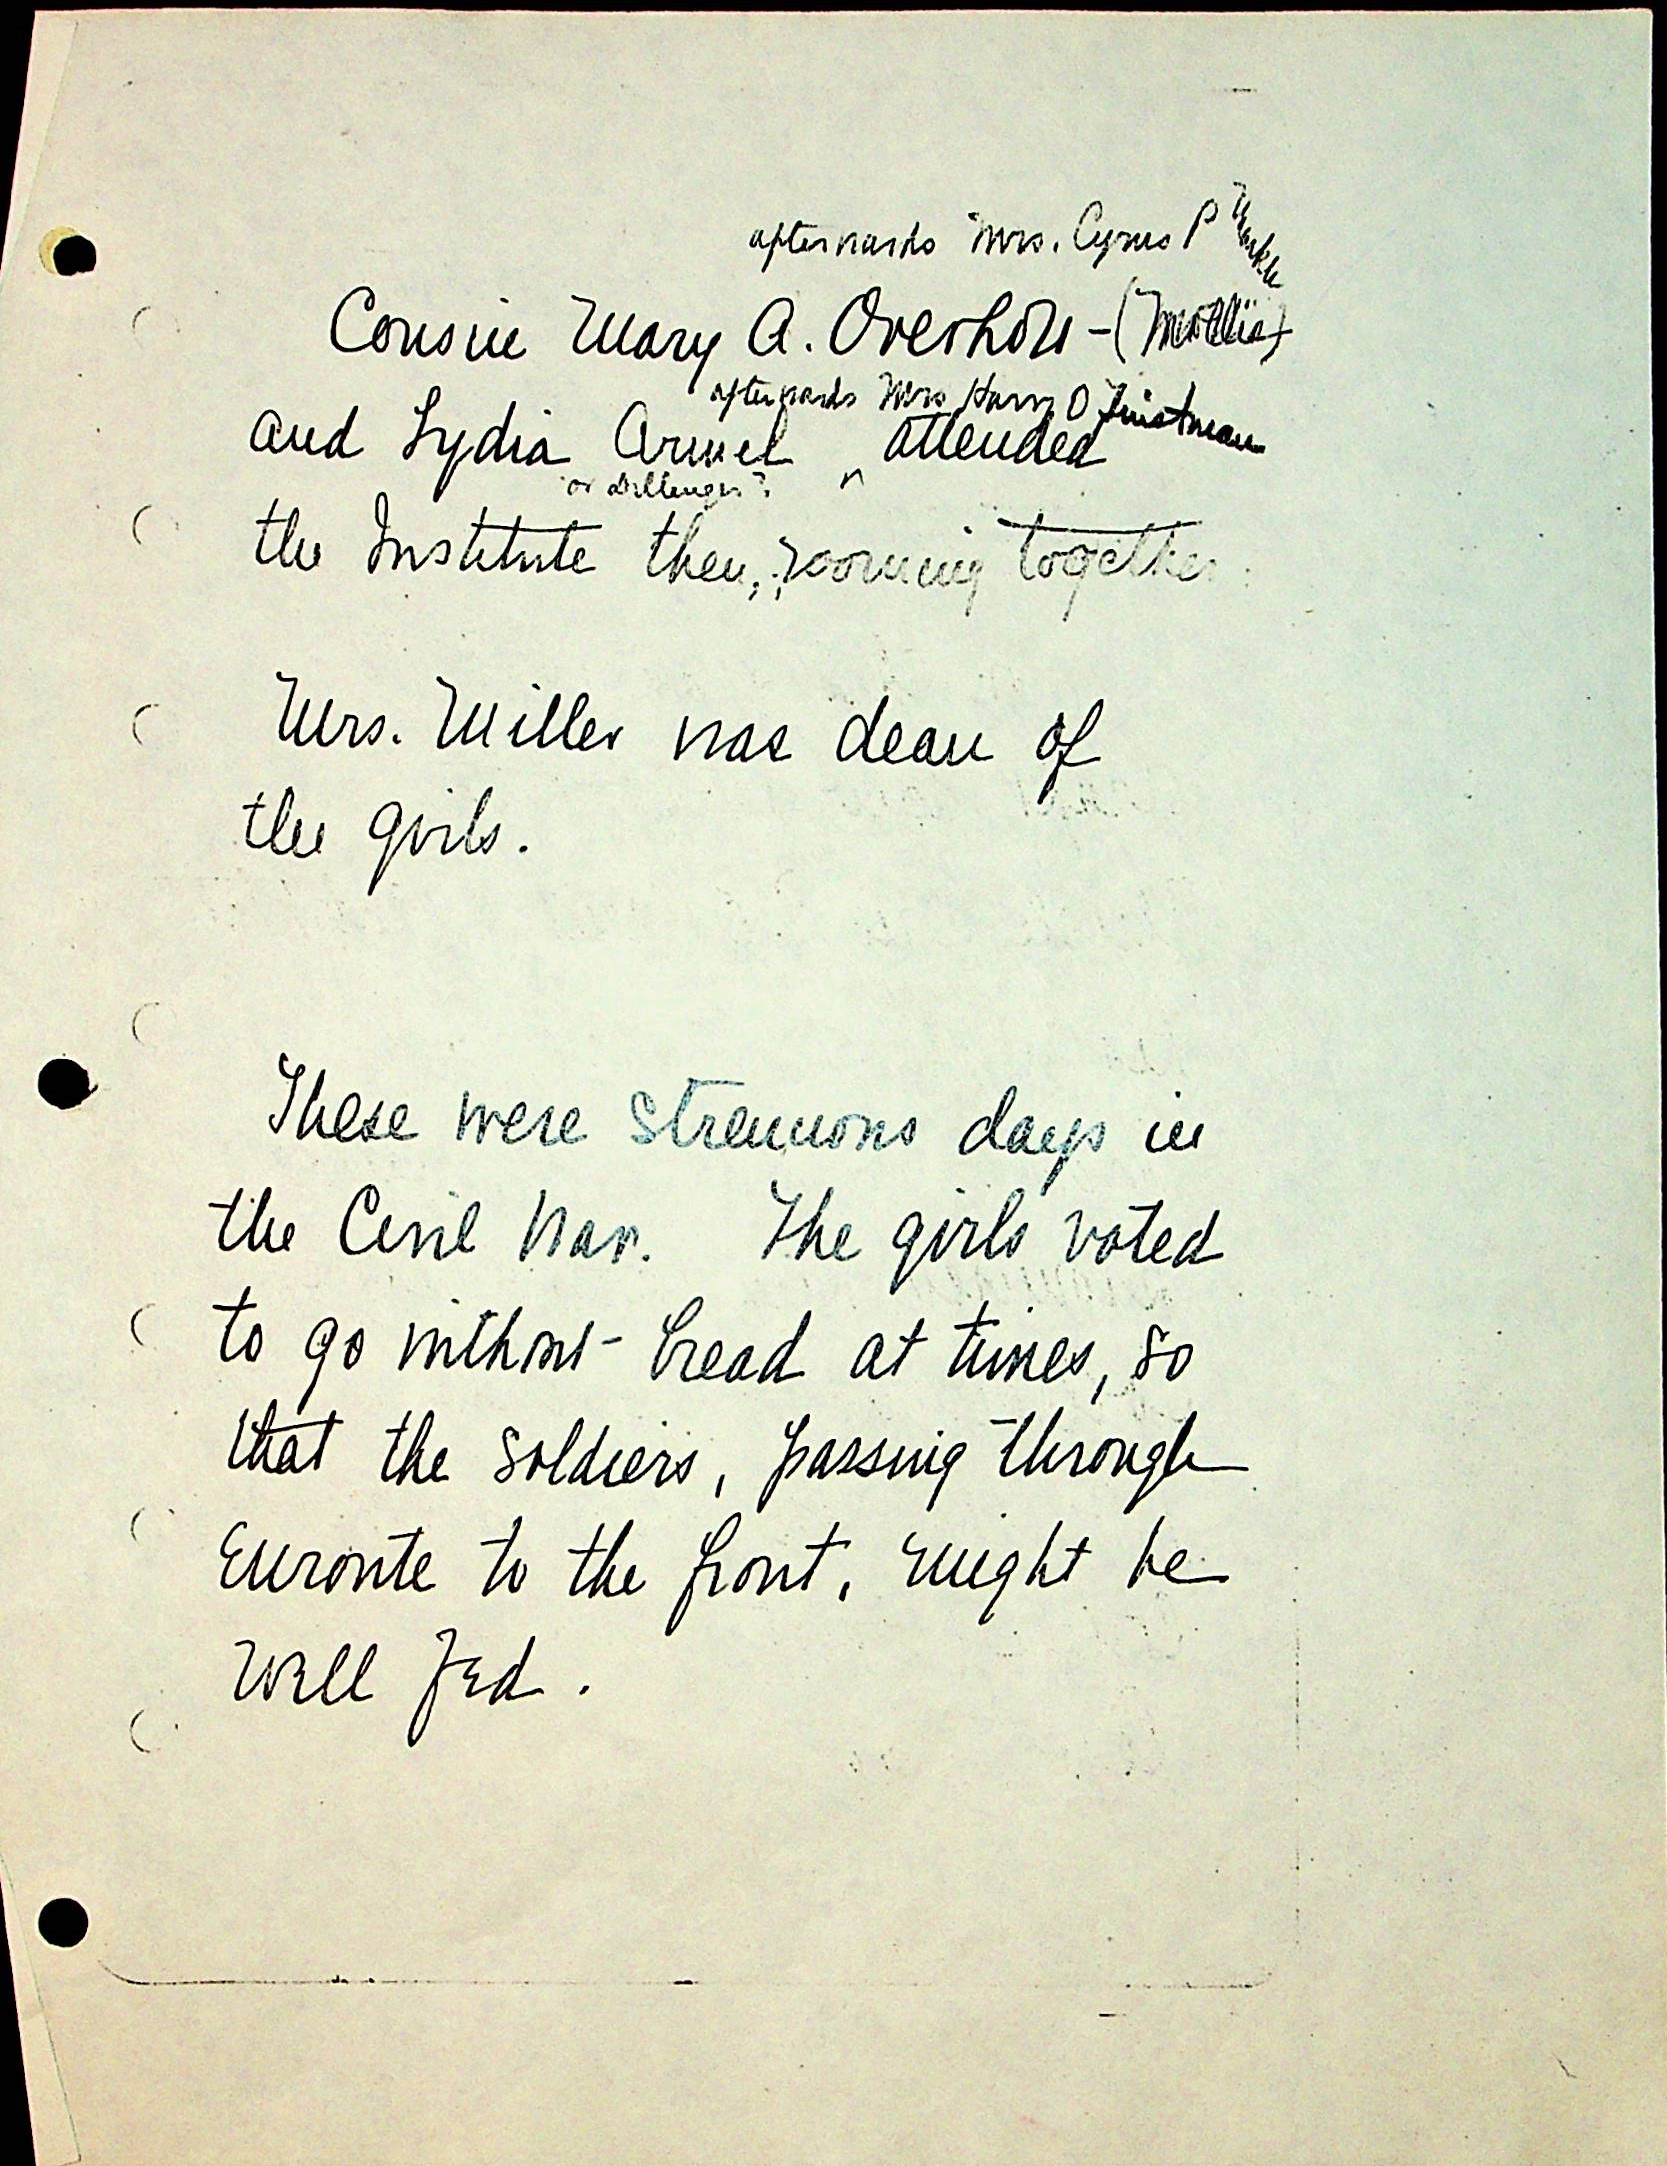 afterwards Mrs. Cyrus P
Cousin Mary A. Overholt - (Mollie)
afterwards Mrs Harry O
and Lydia Armel ^ attended
or Dillenger?
the Institute then, rooming together.
Mrs. Miller was dean of
the girls.
These were strenuous days in
the Civil War. The girls voted
to go without bread at times, so
that the soldiers, passing through
enroute to the front, might be
well fed.